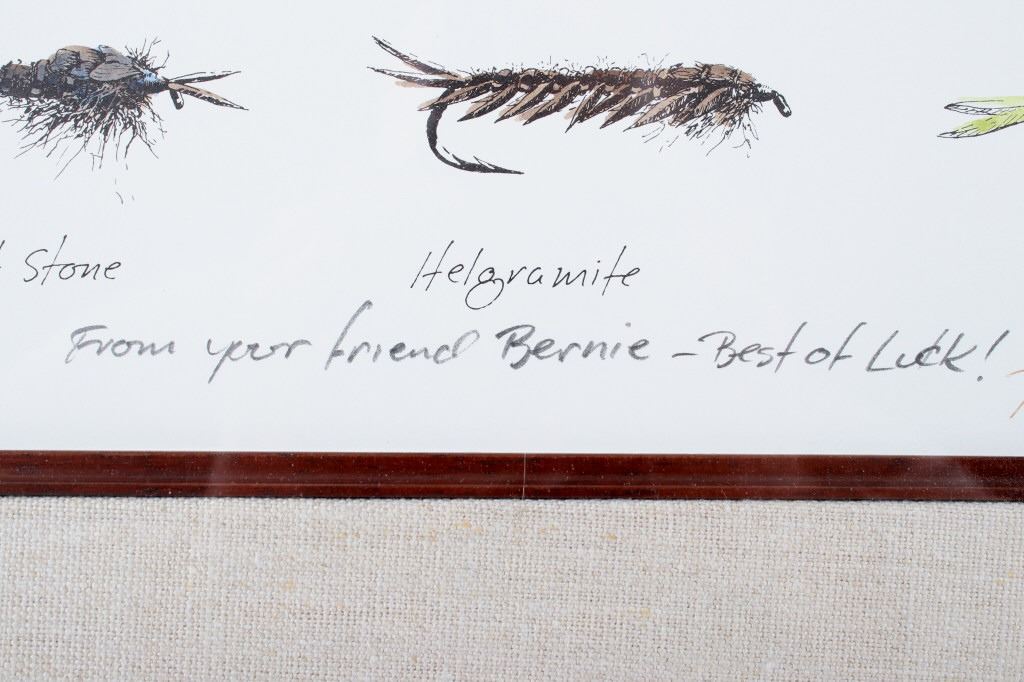 Stone
Helgramite
From your friend Bernie - Best of Luck!